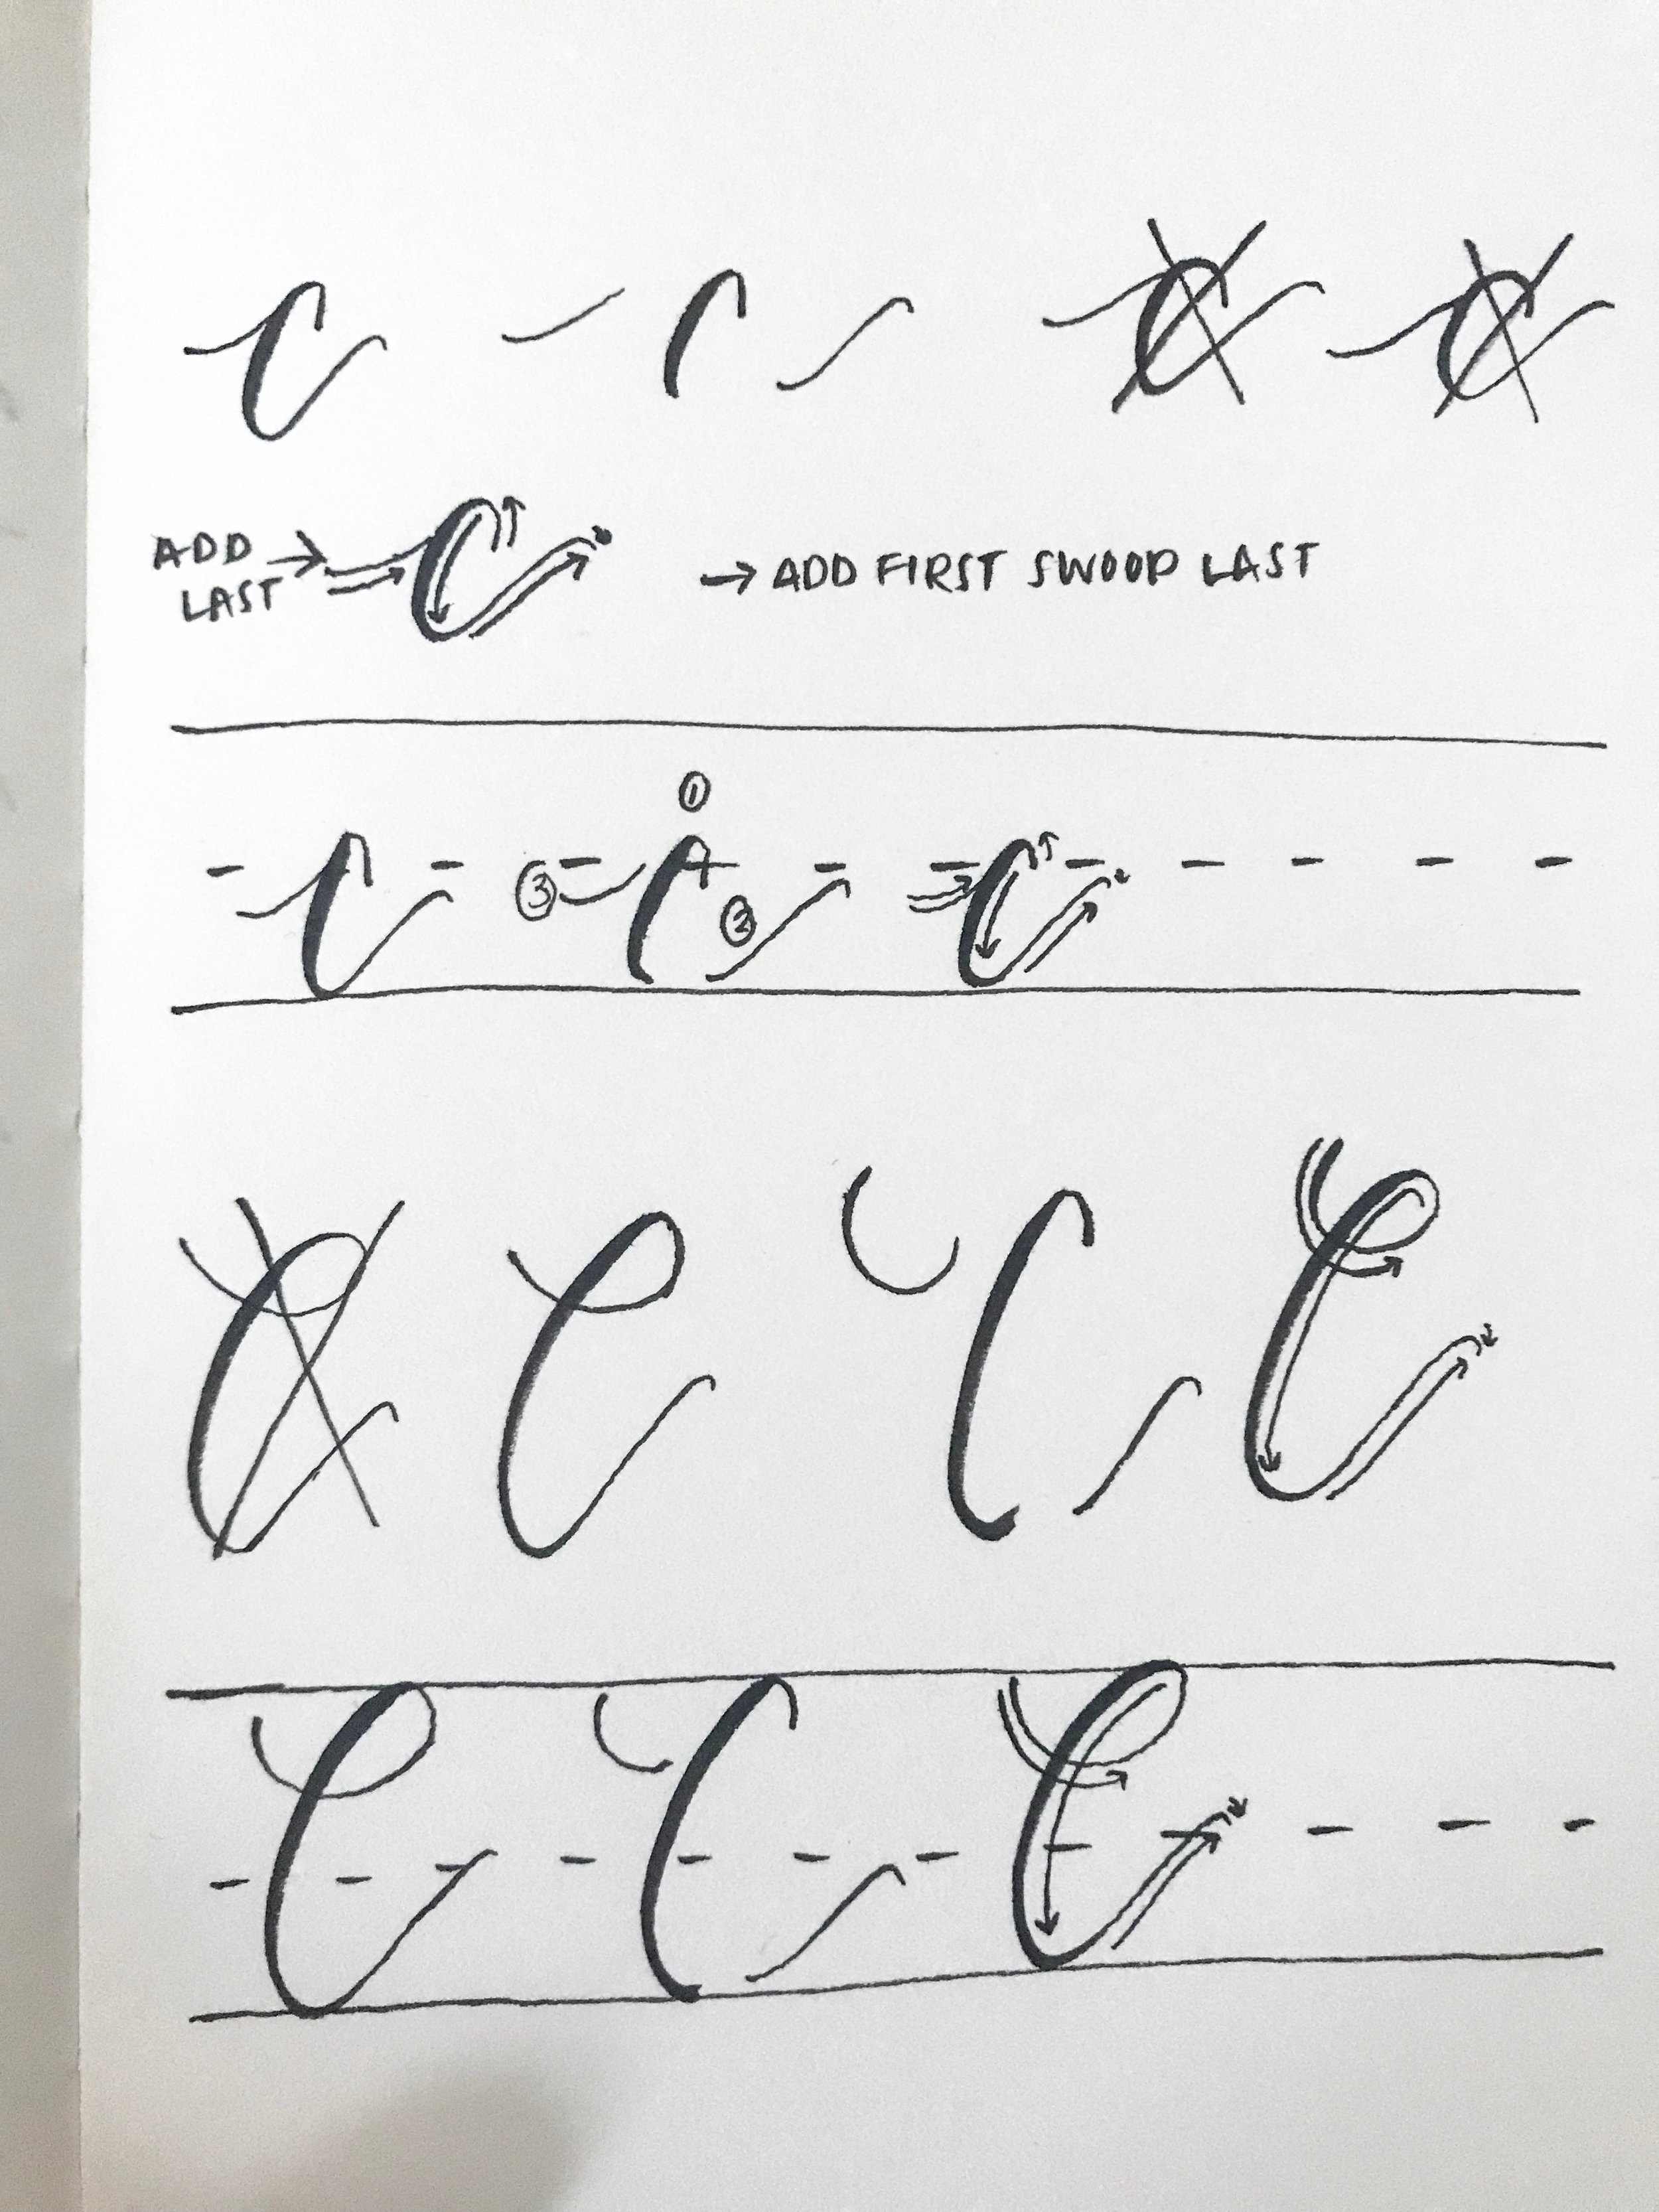 C C C
ADD → C → ADD FIRST SWOOP LAST
LAST
①
C ③ C ② C
C C C C
C C C